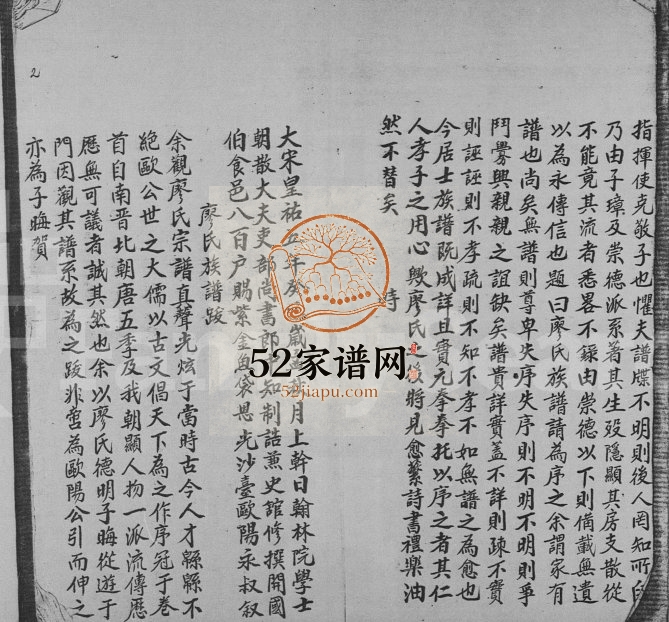 指揮使克敬子也懼夫譜牒不明則後人罔知所自
乃由子璋及崇德派系著其生殁隱顯其房支散從
不能竟其流者悉畧不錄由崇德以下則備載無遺
以為永傳信也題曰廖氏族譜請為序之余謂家有
譜也尚矣無譜則尊卑失序失序則不明不明則爭
鬥釁興親親之誼缺矣譜貴詳實蓋不詳則疎不實
則誣誣則不孝疏則不知不孝不如無譜之為愈也
今居士族譜既成詳且實元拳拳托以序之者其仁
人孝子之用心歟廖氏之後將見愈蘩詩書禮樂油
然不替矣
時
大宋皇祐五年癸歲月上幹日翰林院學士
朝散大夫吏部尚書郎知制誥兼史館修撰開國
伯食邑八百户賜紫金魚袋恩光沙臺歐陽永叔叙
廖氏族譜跋
余觀廖氏宗譜直聲光炫于當時古今人才緜緜不
絕歐公世之大儒以古文倡天下為之作序冠于卷
首自南晋北朝唐五季及我朝顯人物一派流傳歷
歷無可議者誠其然也余以廖氏德明子晦從遊于
門因觀其譜系故為之跋非啻為歐陽公引而伸之
亦為子晦賀
2
52家谱网
52jiapu.com